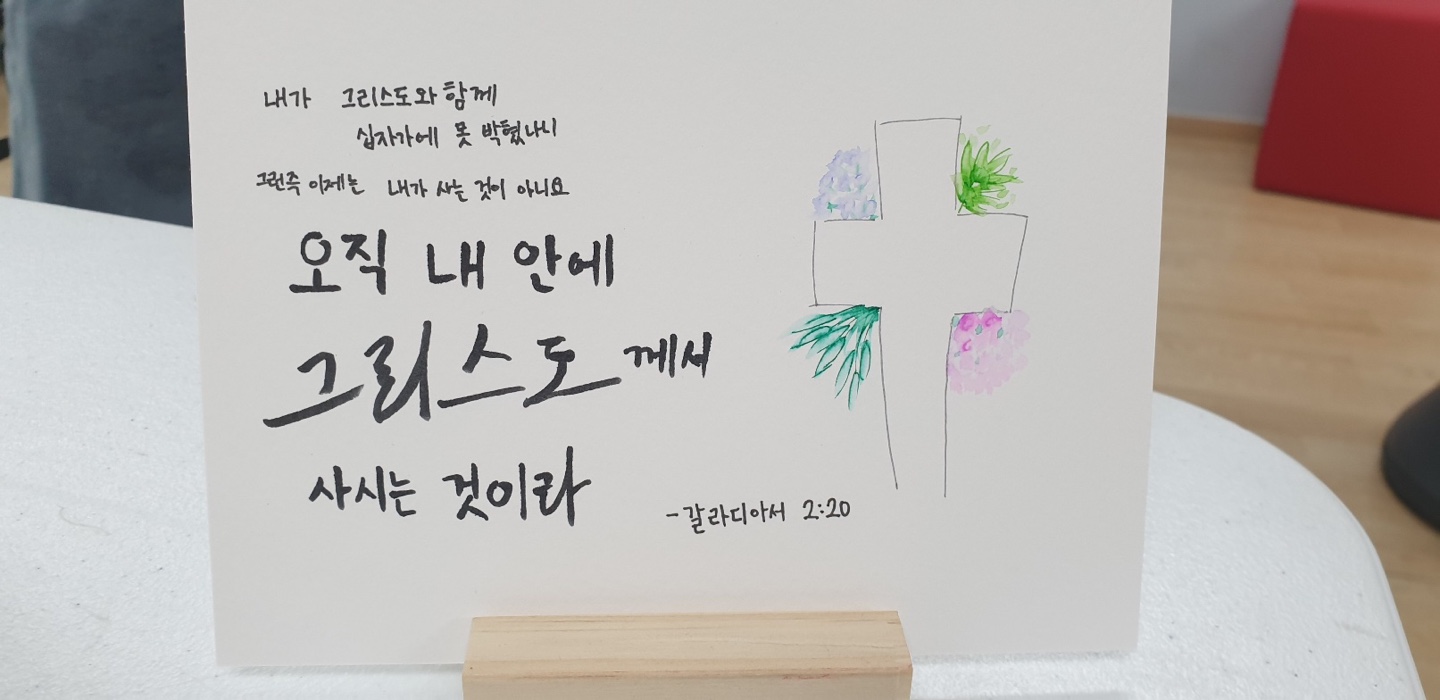 내가 그리스도와 함께
십자가에 못 박혔나니
그런즉 이제는 내가 사는 것이 아니요
오직 내 안에
그리스도께서
사시는 것이라
-갈라디아서 2:20